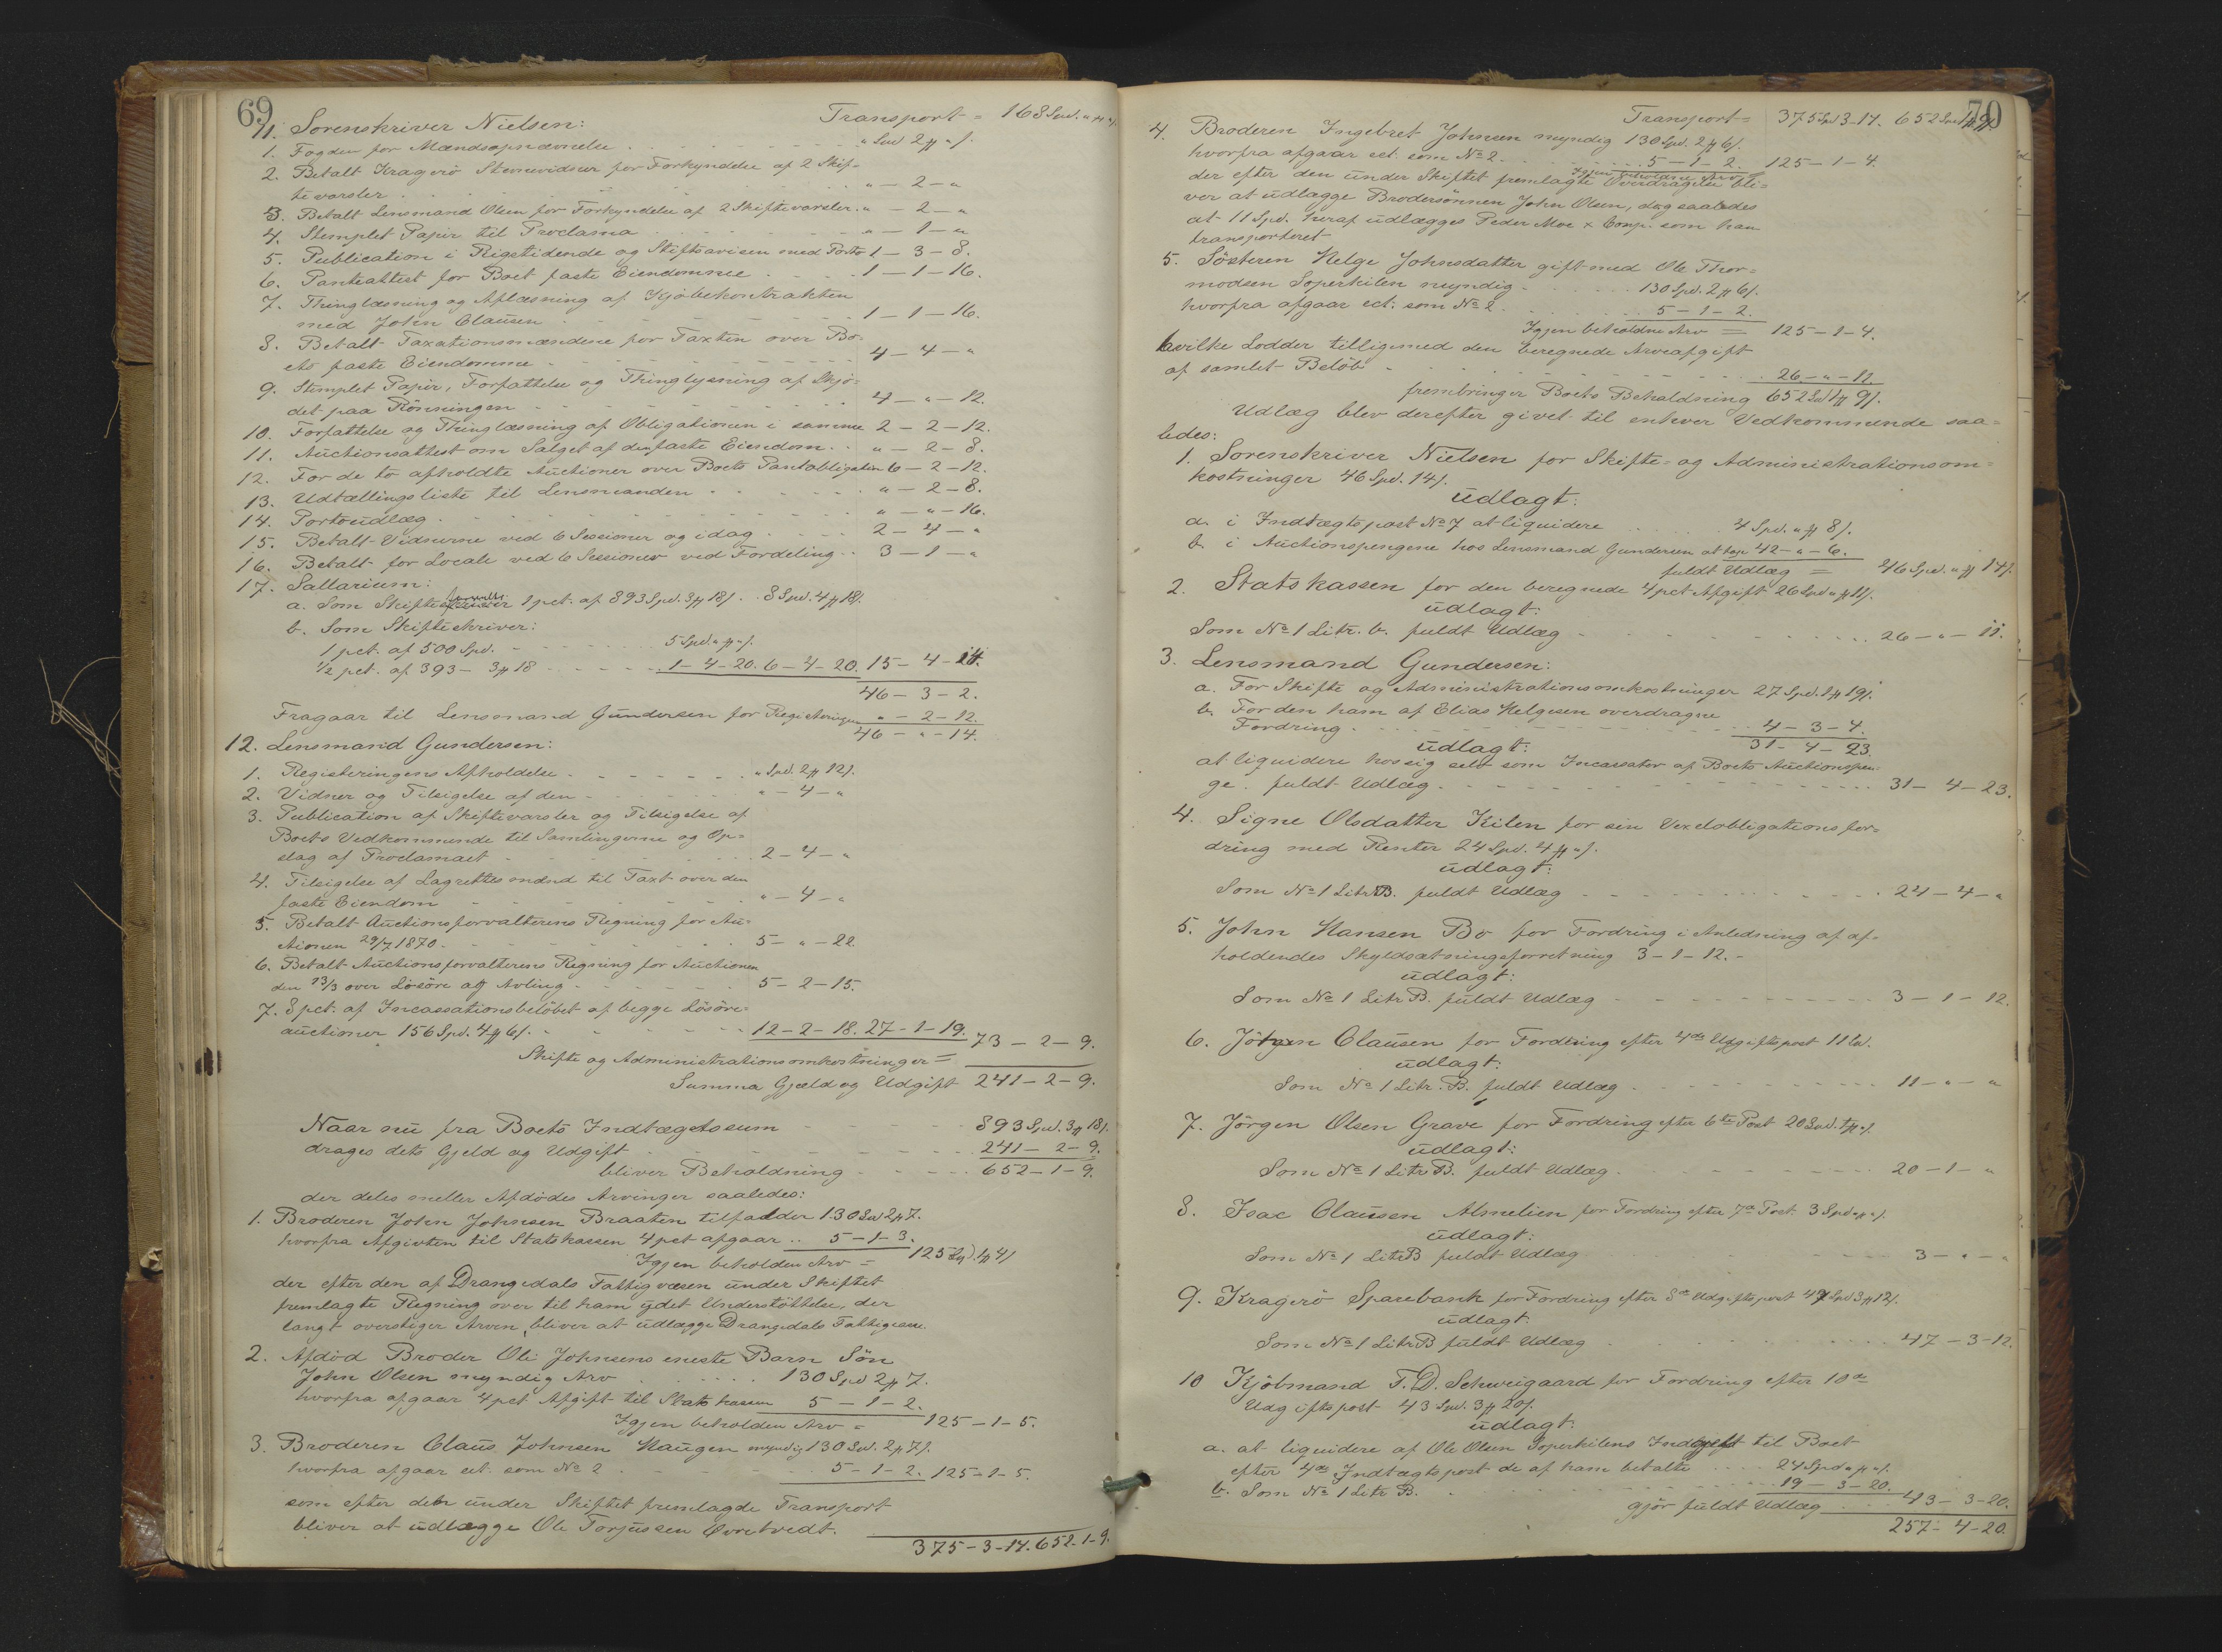 69
Transport = 168 Spd. " # " /.
11. Sorenskriver Nielsen:
1. Fogden for Mændsopnævnelse . . . " Spd 2 # " /.
2. Betalt Kragerö Stevnevidner for Forkyndelse af 2 Skif-
tevarsler . . . " – 2 – "
3. Betalt Lensmand Olsen for Forkyndelse af 2 Skiftevarsler . " – 2 – "
4. Stemplet Papir til Proclama . . . " – 1 – "
5. Publication i Rigstidende og Stiftsavisen med Porto 1 – 3 – 8.
6. Panteattest for Boet faste Eiendomme . . . 1 – 1 – 16.
7. Thinglæsning og Aflæsning af Kjöbekontrakten
med John Clausen . . . 1 – 1 – 16.
8. Betalt Taxationsmændene for Taxten over Bo-
ets faste Eiendomme . . . 4 – 4 – "
9. Stemplet Papir, Forfattelse og Thinglysning af Skjö-
det paa Rönningen . . . 4 – " – 12.
10. Forfattelse og Thinglæsning af Obligationen i samme 2 – 2 – 12.
11. Auctionsattest om Salget af den faste Eiendom . . " – 2 – 8.
12. For de to afholdte Auctioner over Boets Pantobligation 6 – 2 – 12.
13. Udtællingsliste til Lensmanden . . . " – 2 – 8.
14. Portoudlæg . . . " – " – 16.
15. Betalt Vidnerne ved 6 Sessioner og idag . . . 2 – 4 – "
16. Betalt for Locale ved 6 Sessioner ved Fordeling . . 3 – 1 – "
17. Sallarium:
a. Som Skifteforvalter 1 pct. af 893 Spd. 3 # 18 /. . 8 Spd. 4 # 18 /.
b. Som Skifteskriver:
1 pct. af 500 Spd. . . . 5 Spd. " # " /.
1/2 pct. af 393 – 3 # 18 . . . 1 – 4 – 20. 6 – 4 – 20. 15 – 4 – 14.
46 – 3 – 2.
Fragaar til Lensmand Gundersen for Registeringen " – 2 – 12.
46 – " – 14.
12. Lensmand Gundersen:
1. Registeringens Afholdelse . . . " Spd. 2 # 12 /.
2. Vidner og Tilsigelse af den . . . " – 4 – "
3. Publication af Skiftevarsler og Tilsigelse af
Boets Vedkommende til Samlingerne og Op-
slag af Proclamaet . . . 2 – 4 – "
4. Tilsigelse af Lagrettesmænd til Taxt over den
faste Eiendom . . . " – 4 – "
5. Betalt Auctionsforvalterens Regning for Au-
ctionen 29/7 1870 . . . 5 – " – 22.
6. Betalt Auctionsforvalterens Regning for Auctionen
den 23/3 over Lösöre og Avling . . . 5 – 2 – 15.
7. 8 pct. af Incassationsbelöbet af begge Lösöre-
auctioner 156 Spd. 4 # 6 /. . . . 12 – 2 – 18. 27 – 1 – 19.
Skifte og Administrationsomkostninger = 73 – 2 – 9.
Summa Gjæld og Udgift 241 – 2 – 9.
Naar nu fra Boets Indtægtssum . . . 893 Spd. 3 # 18 /.
drages dets Gjeld og Udgift . . . 241 – 2 – 9.
bliver Beholdning . . . 652 – 1 – 9.
der deles meller Afdödes Arvinger saaledes:
1. Broderen John Johnsen Braaten tilfalder 130 Spd 2 # 7.
hvorfra Afgivten til Statskassen 4 pct afgaar . . 5 – 1 – 3.
Igjen beholden Arv = 125 Spd. 1 # 4 /
der efter den af Drangedals Fattigvæsen under Skiftet
fremlagte Regning over til ham ydet Understöttelse, der
langt overstiger Arven, bliver at udlægge Drangedals Fattigvæsen.
2. Afdöd Broder Ole Johnsens eneste Barn Sön
John Olsen myndig Arv . . . 130 Spd 2 # 7.
hvorfra afgaar 4 pct Afgift til Statskassen 5 – 1 – 2.
Igjen beholden Arv = 125 – 1 – 5.
3. Broderen Claus Johnsen Haugen myndig 130 Spd. 2 # 7 /.
hvorfra afgaar ect. som No 2 . . . 5 – 1 – 2. 125 – 1 – 5.
som efter den under Skiftet fremlagde Transport
bliver at udlægge Ole Torjussen Evretvedt.
375 – 3 – 14. 652 – 1 – 9.
70
Transport = 375 Spd 3 – 14. 652 Spd 1 # 9 /.
4. Broderen Ingebret Johnsen myndig 130 Spd. 2 # 6 /.
hvorfra afgaar ect. som No 2 . . . 5 – 1 – 2. 125 – 1 – 4.
Igjen beholdne Arv =
der efter den under Skiftet fremlagte Overdragelse bli-
ver at udlægge Brodersönnen John Olsen, dog saaledes
at 11 Spd. heraf udlægges Peder Moe & Comp. som han
transporteret
5. Sösteren Helge Johnsdatter gift med Ole Thor-
modsen Soperkilen myndig . . . 130 Spd. 2 # 6 /.
hvorfra afgaar ect. som No 2 . . . 5 – 1 – 2.
Igjen beholdne Arv = 125 – 1 – 4.
hvilke Lodder tilligemed den beregnede Arveafgift
af samlet Belöb . . . 26 – " – 12.
frembringer Boets Beholdning 652 Spd 1 # 9 /.
Udlæg blev derefter givet til enhver Vedkommende saa-
ledes:
1. Sorenskriver Nielsen for Skifte- og Administrationsom-
kostninger 46 Spd. 14 /.
udlagt:
a. i Indtægtspost No 7 at liquidere . . . 4 Spd. " # 8 /.
b. i Auctionspengene hos Lensmand Gundersen at tage 42 – " – 6.
fuldt Udlæg = 46 Spd. " # 14 /.
2. Statskassen for den beregnede 4 pct Afgift 26 Spd " # 11 /.
udlagt:
Som No 1 Litr. b. fuldt Udlæg . . . 26 – " – 11.
3. Lensmand Gundersen:
a. For Skifte og Administrationsomkostninger 27 Spd. 1 # 19 /.
b. For den ham af Elias Helgesen overdragne
Fordring . . . 4 – 3 – 4.
31 – 4 – 23.
udlagt:
at liquidere hos sig selv som Incassator af Boets Auctionspen-
ge. fuldt Udlæg . . . 31 – 4 – 23.
4. Signe Olsdatter Kilen for sin Vexelobligationsfor-
dring med Renter 24 Spd. 4 # " /.
udlagt:
Som No 1 Litr B. fuldt Udlæg . . . 24 – 4 – "
5. John Hansen Bo for Fordring i Anledning af af-
holdendes Skyldsætningsforretning 3 – 1 – 12. –
udlagt:
Som No 1 Litr B. fuldt Udlæg . . . 3 – 1 – 12.
6. Jörgen Clausen for Fordring efter 4de Udgiftspost 11 Spd.
udlagt:
Som No 1 Litr. B. fuldt Udlæg . . . 11 – " – "
7. Jörgen Olsen Grave for Fordring efter 6te Post 20 Spd. 1 # " /.
udlagt:
Som No 1 Litr B. fuldt Udlæg . . . 20 – 1 – "
8. Isac Clausen Almelien for Fordring efter 7de Post. 3 Spd " # " /.
udlagt:
Som No 1 Litr B fuldt Udlæg . . . 3 – " – "
9. Kragerö Sparebank for Fordring efter 8de Udgiftspost 47 Spd 3 # 12 /.
udlagt:
Som No 1 Litr B fuldt Udlæg . . . 47 – 3 – 12.
10 Kjöbmand F. D. Schweigaard for Fordring efter 10de
Udgiftspost 43 Spd. 3 # 20 /.
udlagt:
a. at liquidere af Ole Olsen Soperkilens Indgjeld til Boet
efter 4de Indtægtspost de af ham betalte . . . 24 Spd " # " /.
b. Som No 1 Litr B. . . . 19 – 3 – 20.
gjör fuldt Udlæg . . . 43 – 3 – 20.
257 – 4 – 20.